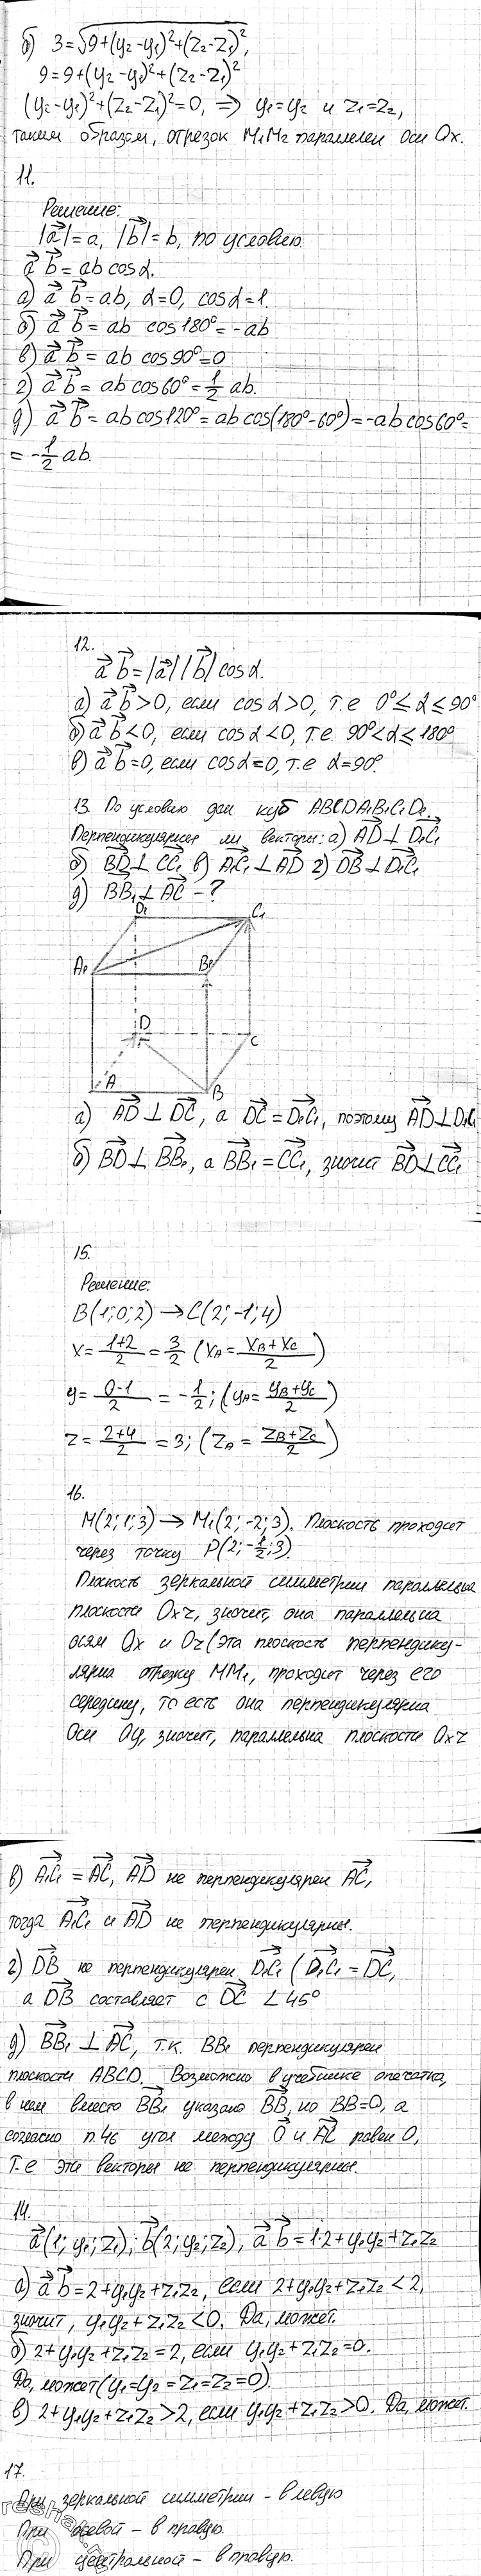 б) 3=√9+(y₂-y₁)²+(z₂-z₁)²,
9=9+(y₂-y₁)²+(z₂-z₁)²
(y₂-y₁)²+(z₂-z₁)²=0, ⇒ y₁=y₂ и z₁=z₂,
таким образом, отрезок M₁M₂ параллелен оси Ox.
11.
Решение:
|a⃗|=a, |b⃗|=b, по условию
a⃗ b⃗=ab cosα.
а) a⃗ b⃗=ab, α=0, cosα=1.
б) a⃗ b⃗= ab cos180°=-ab
в) a⃗ b⃗= ab cos90°=0
г) a⃗ b⃗= ab cos60°=1/2 ab.
д) a⃗ b⃗= ab cos120°=ab cos(180°-60°)=-ab cos60°=
=-1/2 ab.
12.
a⃗ b⃗=|a⃗||b⃗|cosα.
а) a⃗ b⃗>0, если cosα>0, т.е 0°≤α≤90°
б) a⃗ b⃗<0, если cosα<0, т.е. 90°<α≤180°
в) a⃗ b⃗=0, если cosα=0, т.е α=90°.
13. По условию дан куб ABCDA₁B₁C₁D₁.
Перпендикулярны ли векторы: а) AD⃗⊥D₁C₁⃗
б) BD⃗⊥CC₁⃗ в) A₁C₁⃗⊥AD⃗ г) DB⃗⊥D₁C₁⃗
д) BB₁⃗⊥AC⃗ -?
D₁ C₁
A₁ B₁
D C
A B
а) AD⃗⊥DC⃗, а DC⃗=D₁C₁⃗, поэтому AD⃗⊥D₁C₁
б) BD⃗⊥BB₁⃗, а BB₁⃗=CC₁⃗, значит BD⃗⊥CC₁⃗
15.
Решение:
B(1;0;2)→C(2;-1;4)
x= 1+2/2 = 3/2 (x_A= x_B+x_C/2)
y= 0-1/2 = -1/2; (y_A= y_B+y_C/2)
z= 2+4/2 =3; (z_A= z_B+z_C/2)
16.
M(2;1;3)→M₁(2;-2;3). Плоскость проходит
через точку P(2;-1/2;3).
Плоскость зеркальной симметрии параллельна
плоскости Oxz, значит, она параллельна
осям Ox и Oz(эта плоскость перпендику-
лярна отрезку MM₁, проходит через его
середину, то есть она перпендикулярна
Оси Oy, значит, параллельна плоскости Oxz
в) A₁C₁⃗=AC⃗, AD⃗ не перпендикулярен AC⃗,
тогда A₁C₁⃗ и AD⃗ не перпендикулярны.
г) DB⃗ не перпендикулярен D₁C₁⃗ (D₁C₁⃗=DC⃗,
а DB⃗ составляет с DC⃗ ∠45°
д) BB₁⃗⊥AC⃗, т.к. BB₁ перпендикулярен
плоскости ABCD. Возможно в учебнике опечатка,
в нем вместо BB₁⃗ указано BB⃗, но BB=0, а
согласно п.46 угол между 0⃗ и AC⃗ равен 0,
т.е эти векторы не перпендикулярны.
14.
a⃗(1;y₁;z₁); b⃗(2;y₂;z₂), a⃗ b⃗=1·2+y₁y₂+z₁z₂
а) a⃗ b⃗=2+y₁y₂+z₁z₂, если 2+y₁y₂+z₁z₂<2,
значит, y₁y₂+z₁z₂<0. Да, может.
б) 2+y₁y₂+z₁z₂=2, если y₁y₂+z₁z₂=0.
Да, может(y₁=y₂=z₁=z₂=0).
в) 2+y₁y₂+z₁z₂>2, если y₁y₂+z₁z₂>0. Да, может.
17.
При зеркальной симметрии - в левую
При осевой - в правую.
При центральной - в правую.